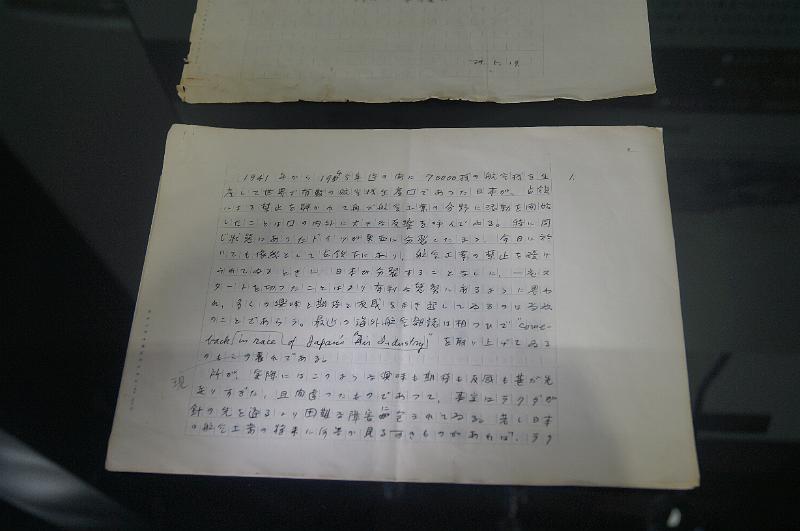 29. 5. 19.
1.
1941年から1945年迄の間に70000機の航空機を生
産して世界で有数の航空機生産国であつた日本が、占領
による禁止を解かれて再び航空工業の分野に活動を開始
したことは国の内外に大きな反響を呼んでゐる。特に同
じ状態にあつたドイツが東西に分裂したまゝ、今日に於
いても依然として占領下にあり、航空工業の禁止を続け
られてゐるときに、日本が分裂することなしに、一先づス
タートを切つたことはより有利な態勢にあるように思わ
れ、多くの興味と期待と反感を引き起してゐるのは
のことであらう。最近の海外航空雑誌は相ついで"Come-
back in race of Japan's Air Industry"を取り上げてゐる
のもこの表れである。
現
所が、実際にはこのような興味も期待も反感も甚が先
走りすぎた、且間違つたものであつて、事実はラクダが
針の穴を通るより困難な障害に会されてゐる。若し日本
の航空工業の将来に何等か見るべきものがあれば、ラク